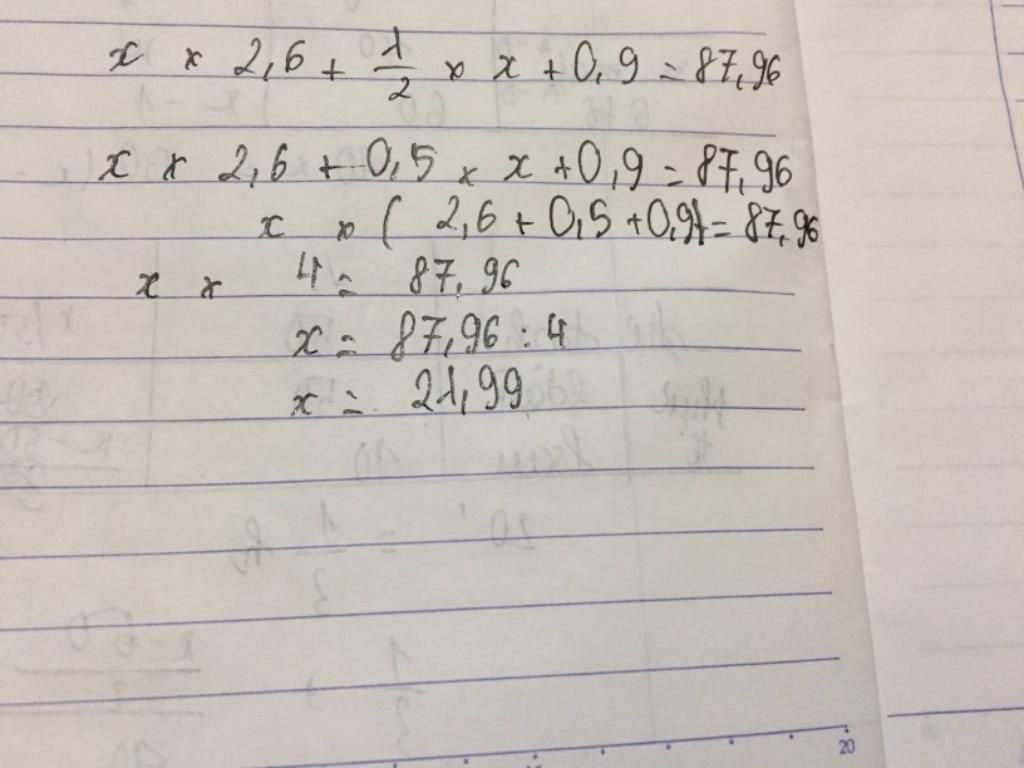 x × 2,6 + 1/2 × x + 0,9 = 87,96
x × 2,6 + 0,5 × x + 0,9 = 87,96
x × ( 2,6 + 0,5 + 0,9) = 87,96
x × 4 = 87,96
x = 87,96 : 4
x = 21,99
20